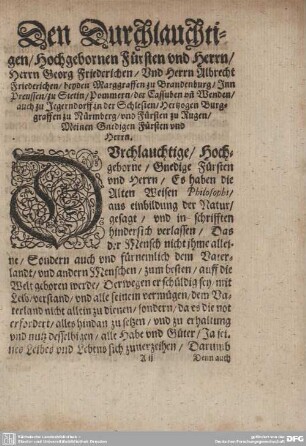 Den Durchlauchti-
gen/ Hochgebornen Fürsten vnd Herrn/
Herrn Georg Friederichen/ Vnd Herrn Albrecht
Friederichen/ beyden Marggraffen zu Brandenburg/ Inn
Preussen/ zu Stetin/ Pommern/ der Cassuben vñ Wenden/
auch zu Jegerndorff in der Schlesien/ Hertzogen Burg-
graffen zu Nürmberg/ vnd Fürsten zu Rugen/
Meinen Gnedigen Fürsten vnd
Herrn.
DVrchlauchtige/ Hoch-
geborne/ Gnedige Fürsten
vnd Herrn/ Es haben die
Alten Weisen Philosophi,
aus einbildung der Natur/
gesagt/ vnd in schrifften
hindersich verlassen/ Das
der Mensch nicht ihme allei-
ne/ Sondern auch vnd fürnemlich dem Vater-
landt/ vnd andern Menschen/ zum besten/ auff die
Welt geboren werde/ Derwegen er schüldig sey/ mit
Leib/ verstand/ vnd alle seinem vermügen/ dem Va-
terland nicht allein zu dienen/ sondern/ da es die not
erfordert/ alles hindan zu setzen/ vnd zu erhaltung
vnd nutz desselbigen/ alle Habe vnd Güter/ Ja sei-
nes Leibes vnd Lebens sich zuuerzeihen/ Darumb
A ij
Denn auch